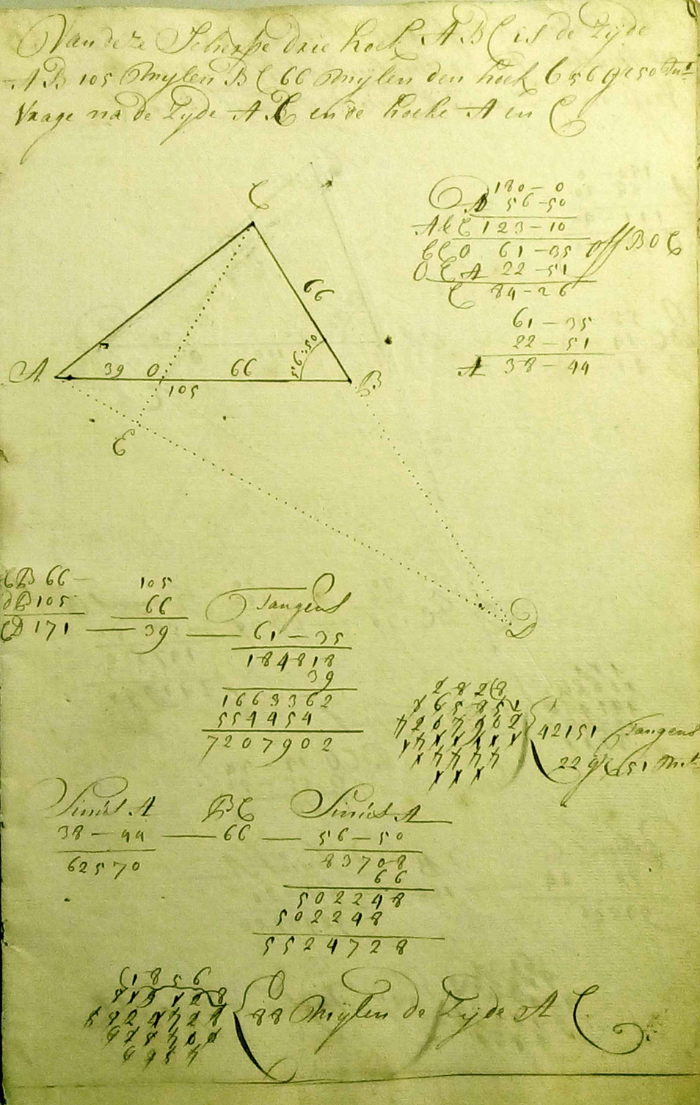 Van deze Scherpe drie hoek A B C is de Zyde
A B 105 Mylen B C 66 Mylen den hoek B 56 gr 50 Mt
Vrage na de Zyde A C en de hoeke A en C
C
66
56-50
A 39 O 66 B
105
E
D
180-0
56-50
A & C 123-10
C O 61-35 off B O C
O C A 22-51
C 84-26
61-35
22-51
A 38-44
CB 66 105
dB 105 66
CD 171 — 39 — Tangens
61-35
184818
39
1663362
554454
7207902
42151 Tangens
22 gr 51 Mt
Sinus A BC Sinus A
38-44 — 66 — 56-50
62570 83708
66
502248
502248
5524728
88 Mylen de Zyde A C